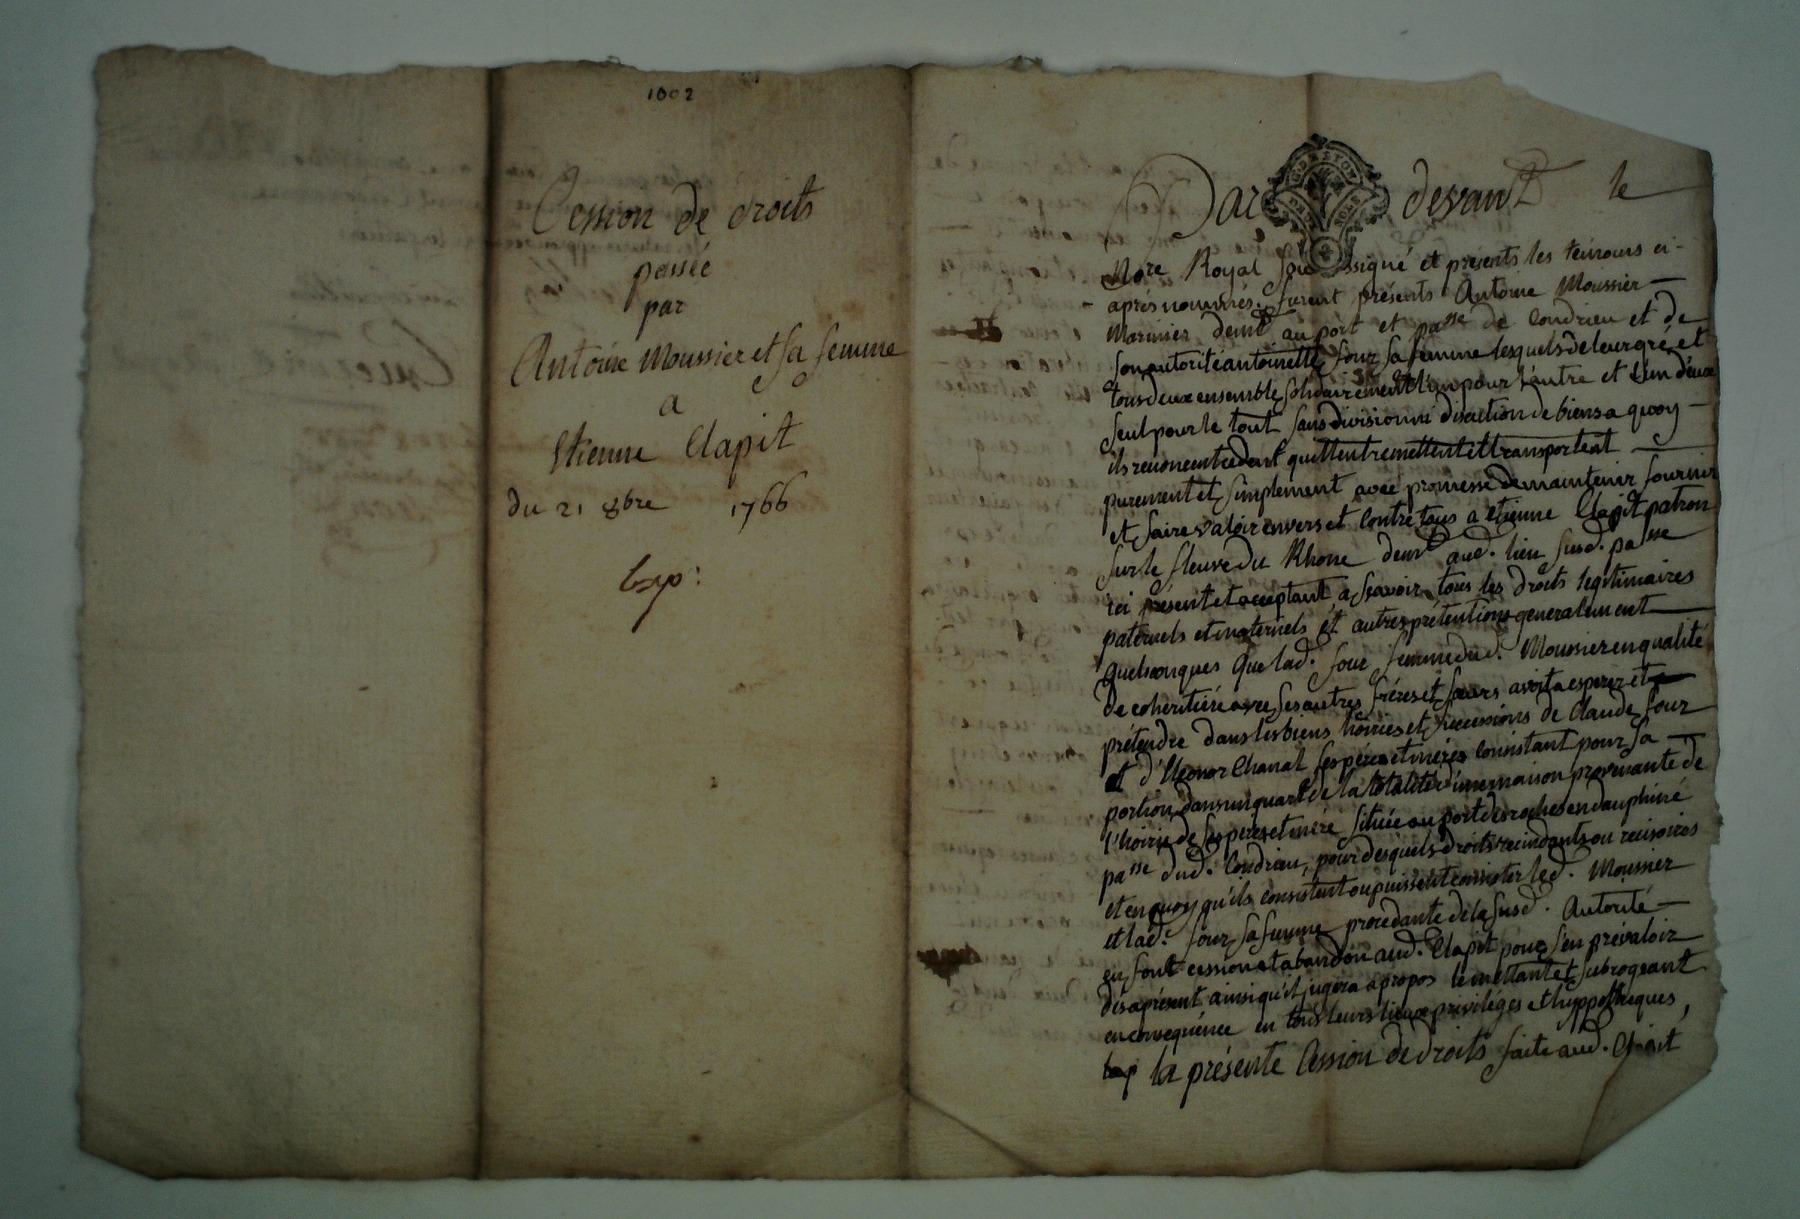 1002
Cession de droits
passée
par
Antoine Moussier et sa femme
a
Etienne Clapit
du 21 8bre 1766
Exp:
Par devant le
Nore Royal sous signé et présents les temoins ci-
après nommés. furent présents Antoine Moussier
Marinier demt au port et passe de Condrieu et de
son autorité antoinette four sa femme lesquels de leur gré et
tous deux ensemble solidairement l'un pour l'autre et l'un d'eux
seul pour le tout sans division ni discution de biens a quoy
ils renoncent cedent quittent remettent et transportent
purement et simplement avec promesse de maintenir fournir
et faire valoir envers et contre tous a etienne Clapit patron
sur le fleuve du Rhone demt aud. lieu susd. passe
ici présent et acceptant, a scavoir tous les droits legitimaires
paternels et maternels et autres prétentions generalement
quelconques que lad. four femme dud. Moussier en qualité
de coheritiére avec ses autres fréres et sœurs avoit a esperer et
prétendre dans les biens hoiries et successions de Claude four
et d'Eleonor Chanal ses pére et mére consistant pour sa
portion dans un quart de la totalité d'une maison provenante de
l'hoirie de ses pere et mére située au port des roches en dauphiné
passe dud. Condrieu, pour desquels droits rescindants ou rescisoires
et en quoy qu'ils consistent ou puissent consister led. Moussier
et lad. four sa femme procedante de la susd. Autorité
en font cession et abandon aud. Clapit pour s'en prévaloir
dés aprésent ainsi qu'il jugera a propos le mettant et subrogeant
en consequence en tous leurs lieux privilèges et hyppotheques,
la présente Cession de droits faite aud. Clapit